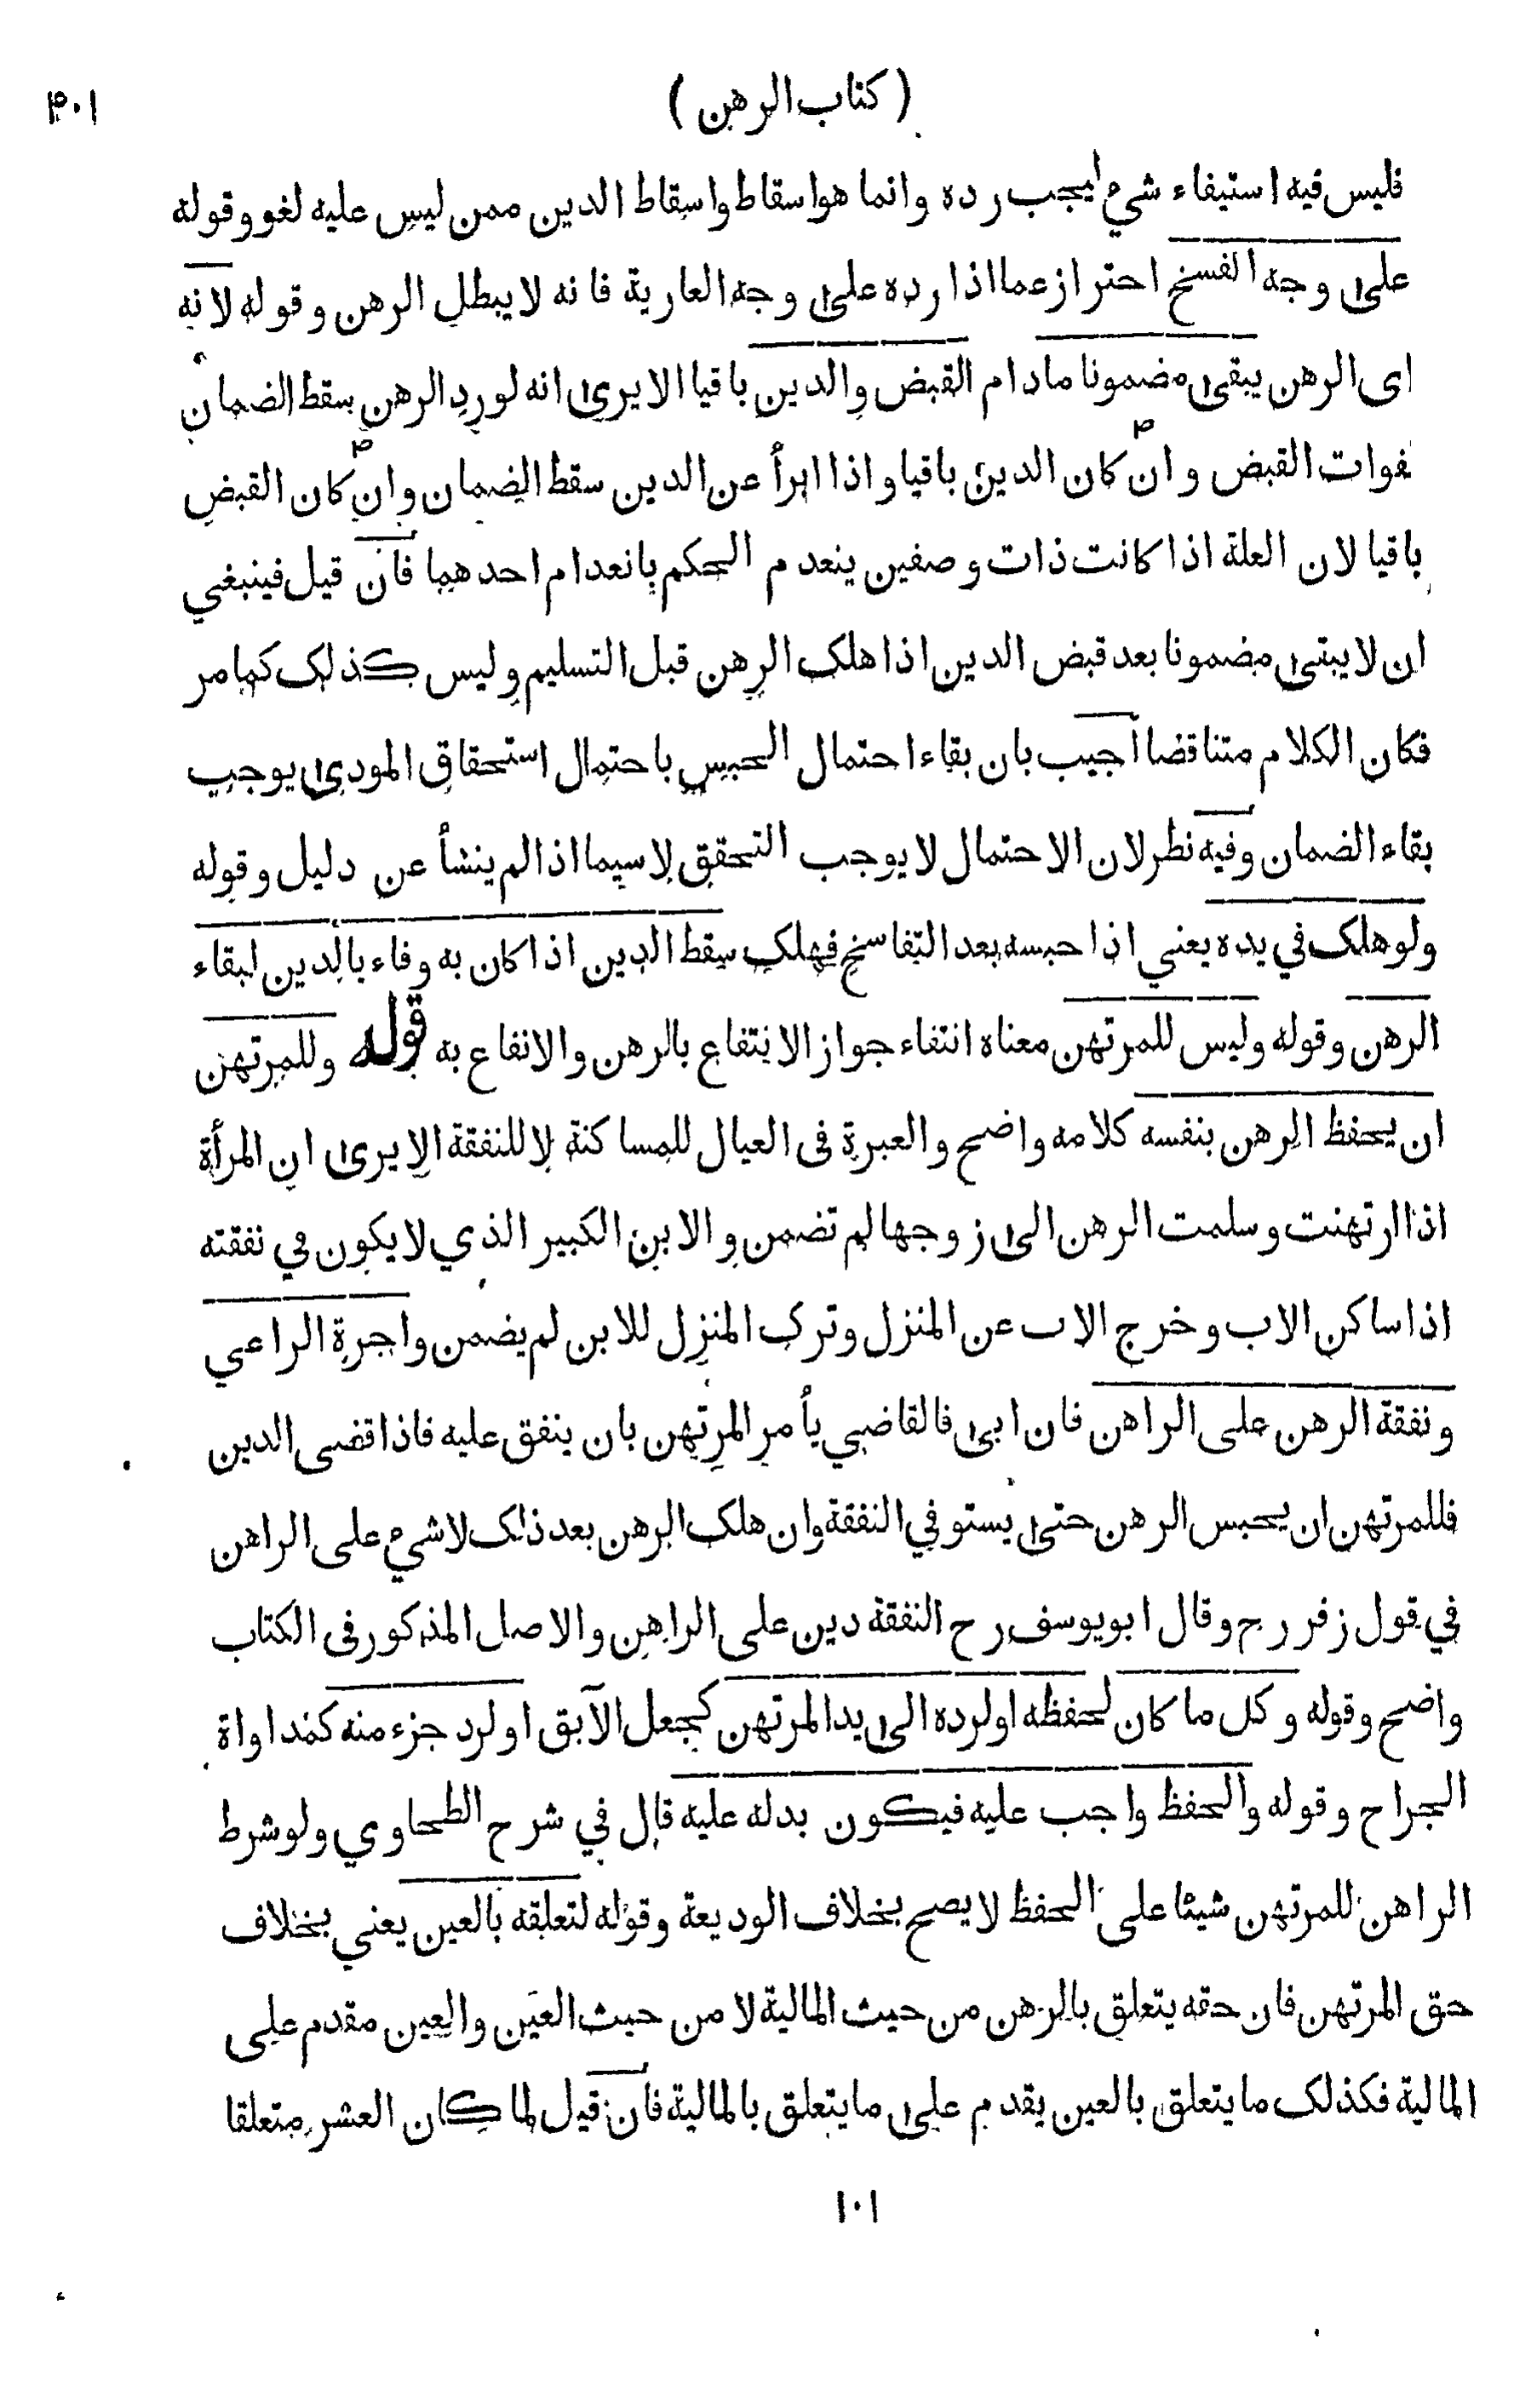 ( كتاب الرهن )
۴۰۱
فليس فيه استيفاء شيء يجب رده وانما هو اسقاط واسقاط الدين ممن ليس عليه لغو وقوله
على وجه الفسخ احتراز عما اذا رده على وجه العارية فانه لا يبطل الرهن وقوله لانه
اى الرهن يبقى مضمونا ما دام القبض والدين باقيا الا يرى انه لو رد الرهن سقط الضمان
لفوات القبض وان كان الدين باقيا واذا ابرأ عن الدين سقط الضمان وان كان القبض
باقيا لان العلة اذا كانت ذات وصفين ينعدم الحكم بانعدام احدهما فان قيل فينبغي
ان لا يبقى مضمونا بعد قبض الدين اذا هلك الرهن قبل التسليم وليس كذلك كما مر
فكان الكلام متناقضا اجيب بان بقاء احتمال الحبس باحتمال استحقاق المودى يوجب
بقاء الضمان وفيه نظر لان الاحتمال لا يوجب التحقق لا سيما اذا لم ينشأ عن دليل وقوله
ولو هلك في يده يعني اذا حبسه بعد التفاسخ فهلك سقط الدين اذا كان به وفاء بالدين لبقاء
الرهن وقوله وليس للمرتهن معناه انتفاء جواز الانتفاع بالرهن والانفاع به قوله وللمرتهن
ان يحفظ الرهن بنفسه كلامه واضح والعبرة فى العيال للمساكنة لا للنفقة الا يرى ان المرأة
اذا ارتهنت وسلمت الرهن الى زوجها لم تضمن والابن الكبير الذي لا يكون في نفقته
اذا ساكن الاب وخرج الاب عن المنزل وترك المنزل للابن لم يضمن واجرة الراعي
ونفقة الرهن على الراهن فان ابى فالقاضي يأمر المرتهن بان ينفق عليه فاذا قضى الدين
فللمرتهن ان يحبس الرهن حتى يستوفي النفقة وان هلك الرهن بعد ذلك لا شيء على الراهن
في قول زفر رح وقال ابو يوسف رح النفقة دين على الراهن والاصل المذكور فى الكتاب
واضح وقوله وكل ما كان لحفظه او لرده الى يد المرتهن كجعل الآبق او لرد جزء منه كمداواة
الجراح وقوله والحفظ واجب عليه فيكون بدله عليه قال في شرح الطحاوي ولو شرط
الراهن للمرتهن شيئا على الحفظ لا يصح بخلاف الوديعة وقوله لتعلقه بالعين يعني بخلاف
حق المرتهن فان حقه يتعلق بالرهن من حيث المالية لا من حيث العين والعين مقدم على
المالية فكذلك ما يتعلق بالعين يقدم على ما يتعلق بالمالية فان قيل لما كان العشر متعلقا
١٠١